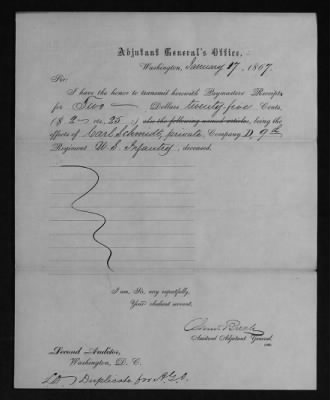 Adjutant General's Office,
Washington, January 17, 1867.
Sir:
I have the honor to transmit herewith Paymasters' Receipts
for Two — Dollars twenty five Cents,
($ 2 — 25 ;) also the following named articles, being the
effects of Carl Schmidt, private, Company D, 9th
Regiment U S Infantry, deceased.
I am, Sir, very respectfully,
Your obedient servant,
Assistant Adjutant General.
Second Auditor,
Washington, D. C.
Duplicate for